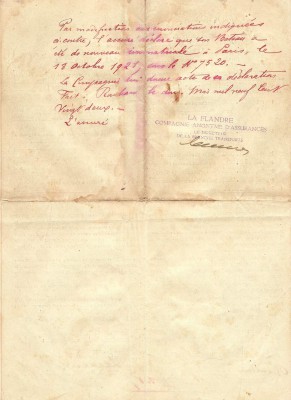 Par modification aux énonciations indiquées
ci-contre, l'assuré déclare que sa Voiture a
été de nouveau immatriculée à Paris, le
13 Octobre 1921 sous le No 7520. -
La Compagnie lui donne acte de sa déclaration
Fait à le mil neuf cent
Vingt deux. -
L'assuré
LA FLANDRE
COMPAGNIE ANONYME D'ASSURANCES
LE DIRECTEUR